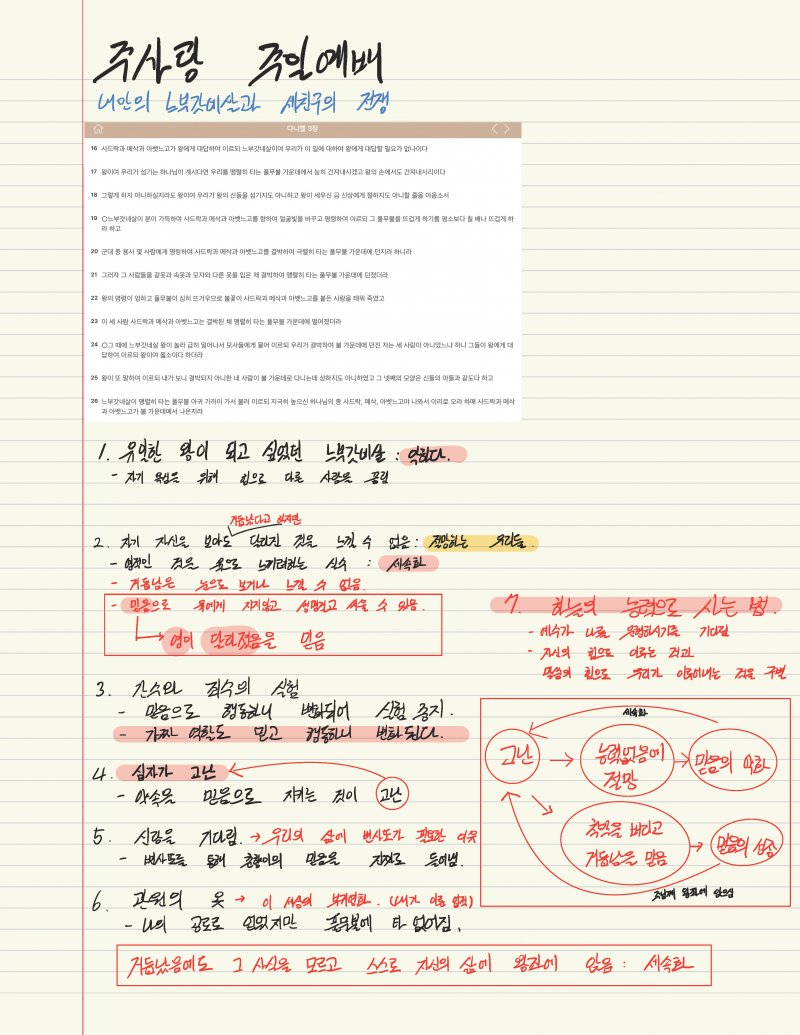 주사랑 주일예배
내안의 느부갓네살과 세친구의 전쟁
다니엘 3장
16 사드락과 메삭과 아벳느고가 왕에게 대답하여 이르되 느부갓네살이여 우리가 이 일에 대하여 왕에게 대답할 필요가 없나이다
17 왕이여 우리가 섬기는 하나님이 계시다면 우리를 맹렬히 타는 풀무불 가운데에서 능히 건져내시겠고 왕의 손에서도 건져내시리이다
18 그렇게 하지 아니하실지라도 왕이여 우리가 왕의 신들을 섬기지도 아니하고 왕이 세우신 금 신상에게 절하지도 아니할 줄을 아옵소서
19 ○느부갓네살이 분이 가득하여 사드락과 메삭과 아벳느고를 향하여 얼굴빛을 바꾸고 명령하여 이르되 그 풀무불을 뜨겁게 하기를 평소보다 칠 배나 뜨겁게 하
라 하고
20 군대 중 용사 몇 사람에게 명령하여 사드락과 메삭과 아벳느고를 결박하여 극렬히 타는 풀무불 가운데에 던지라 하니라
21 그러자 그 사람들을 겉옷과 속옷과 모자와 다른 옷을 입은 채 결박하여 맹렬히 타는 풀무불 가운데에 던졌더라
22 왕의 명령이 엄하고 풀무불이 심히 뜨거우므로 불꽃이 사드락과 메삭과 아벳느고를 붙든 사람을 태워 죽였고
23 이 세 사람 사드락과 메삭과 아벳느고는 결박된 채 맹렬히 타는 풀무불 가운데에 떨어졌더라
24 ○그 때에 느부갓네살 왕이 놀라 급히 일어나서 모사들에게 물어 이르되 우리가 결박하여 불 가운데에 던진 자는 세 사람이 아니었느냐 하니 그들이 왕에게 대
답하여 이르되 왕이여 옳소이다 하더라
25 왕이 또 말하여 이르되 내가 보니 결박되지 아니한 네 사람이 불 가운데로 다니는데 상하지도 아니하였고 그 넷째의 모양은 신들의 아들과 같도다 하고
26 느부갓네살이 맹렬히 타는 풀무불 아귀 가까이 가서 불러 이르되 지극히 높으신 하나님의 종 사드락, 메삭, 아벳느고야 나와서 이리로 오라 하매 사드락과 메삭
과 아벳느고가 불 가운데에서 나온지라
1. 유일한 왕이 되고 싶었던 느부갓네살 : 악하다.
- 자기 욕심을 위해 힘으로 다른 사람을 굴림
거듭났다고 하지만
2. 자기 자신을 보아도 달라진 것을 느낄 수 없음: 절망하는 우리들.
- 영적인 것을 육으로 느끼려하는 실수 : 세속화
- 거듭남은 눈으로 보거나 느낄 수 없음.
- 믿음으로 육에게 지지않고 생명걸고 싸울 수 있음.
영이 달라졌음을 믿음
3. 간수와 죄수의 실험
- 믿음으로 행동하니 변화되어 실험 중지.
- 가짜 역할도 믿고 행동하니 변화된다.
4. 십자가 고난
- 약속을 믿음으로 지키는 것이 고난
5. 신랑을 기다림. → 우리의 삶에 변사도가 필요한 이유
- 변사도를 통해 춘향이의 믿음을 진짜로 들어냄.
6. 관원의 옷 → 이 세상의 부귀영화. (내가 이룬 업적)
- 나의 공로로 입었지만 풀무불에 타 없어짐.
7. 하늘의 능력으로 사는 법.
- 예수가 나를 통행하시기를 기다림
- 자신의 힘으로 이루는 것과
말씀의 힘으로 우리가 이루어내는 것을 구별
세속화
고난
능력없음에
절망
믿음의 약화
육을 버리고
거듭남을 믿음
믿음의 성장
주님께 왕좌에 앉으심
거듭났음에도 그 사실을 모르고 스스로 자신의 삶에 왕좌에 앉음 : 세속화